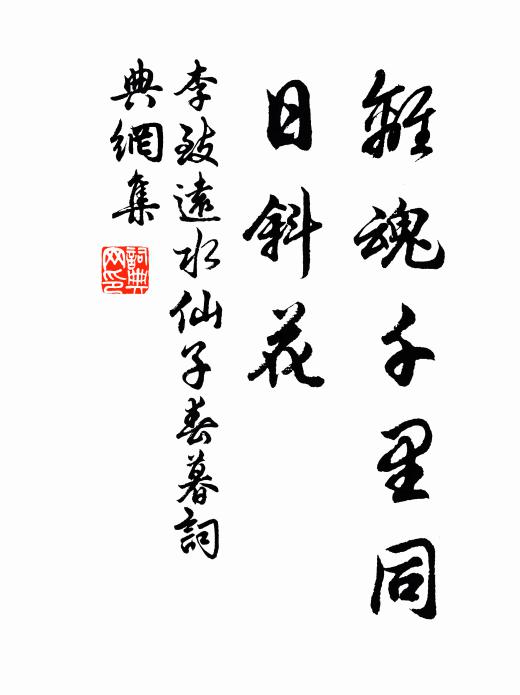 離魂千里同
日斜花
李致遠水仙子春暮詞
典網集
詞典網印